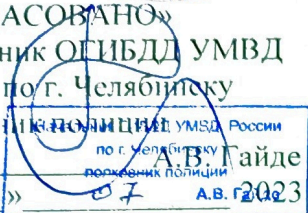 АСОВАНО»
ник ОГИБДД УМВД
по г. Челябинску
ник полиции
УМВД России
по г. Челябинску
полковник полиции
А.В. Гайде
» 07 2023
А.В. Гайде